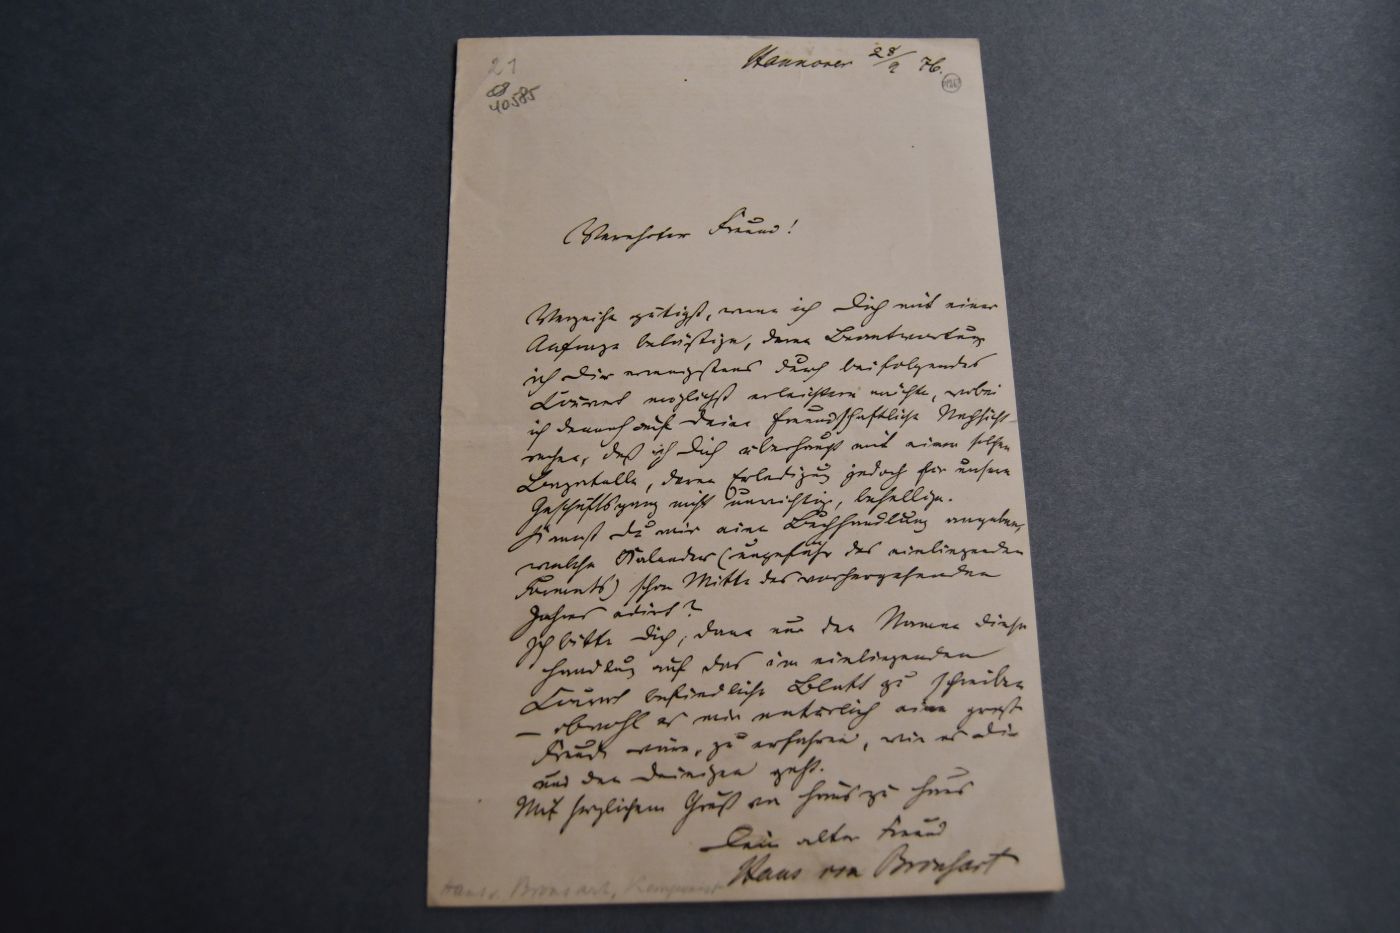 21
40585
Hannover 28/9 76.
Verehrter Freund!
Verzeihe gütigst, wenn ich Dich mit einer
Anfrage belästige, deren Beantwortung
ich Dir wenigstens durch beifolgendes
Couvert möglichst erleichtern möchte, wobei
ich dennoch auf Deine freundschaftliche Nachsicht
rechne, daß ich Dich überhaupt mit einer solchen
Bagatelle, deren Erledigung jedoch für unsern
Geschäftsgang nicht unwichtig, behellige.
Kannst Du mir eine Buchhandlung angeben,
welche Kalender (ungefähr des einliegenden
Formats) schon Mitte des vorhergehenden
Jahres edirt?
Ich bitte Dich, dann nur den Namen dieser
Handlung auf das im einliegenden
Couvert befindliche Blatt zu schreiben
– obwohl es mir natürlich eine große
Freude wäre, zu erfahren, wie es Dir
und den Deinigen geht.
Mit herzlichem Gruß von Haus zu Haus
Dein alter Freund
Hans von Bronsart
Hans v. Bronsart, Komponist